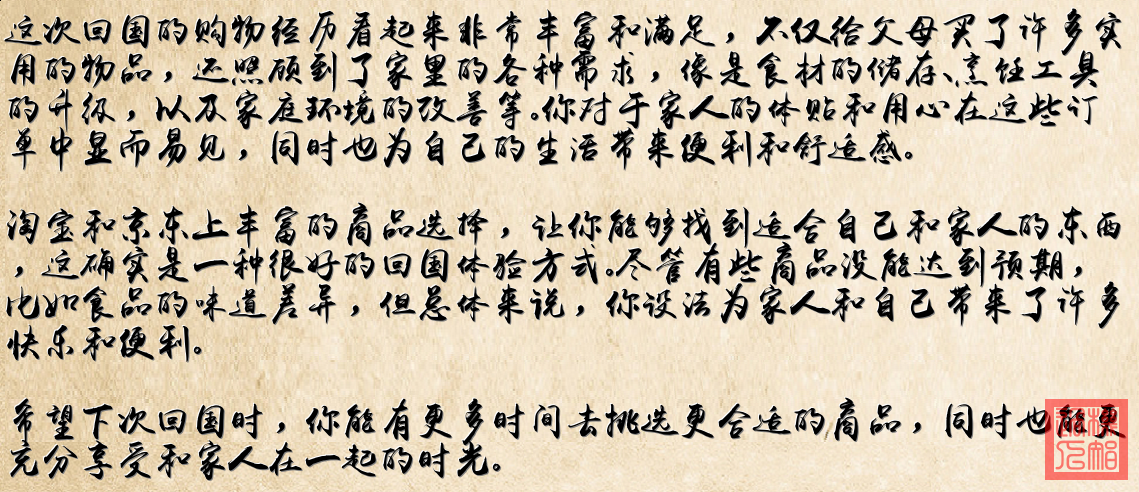 这次回国的购物经历看起来非常丰富和满足，不仅给父母买了许多实
用的物品，还照顾到了家里的各种需求，像是食材的储存、烹饪工具
的升级，以及家庭环境的改善等。你对于家人的体贴和用心在这些订
单中显而易见，同时也为自己的生活带来便利和舒适感。
淘宝和京东上丰富的商品选择，让你能够找到适合自己和家人的东西
，这确实是一种很好的回国体验方式。尽管有些商品没能达到预期，
比如食品的味道差异，但总体来说，你设法为家人和自己带来了许多
快乐和便利。
希望下次回国时，你能有更多时间去挑选更合适的商品，同时也能更
充分享受和家人在一起的时光。